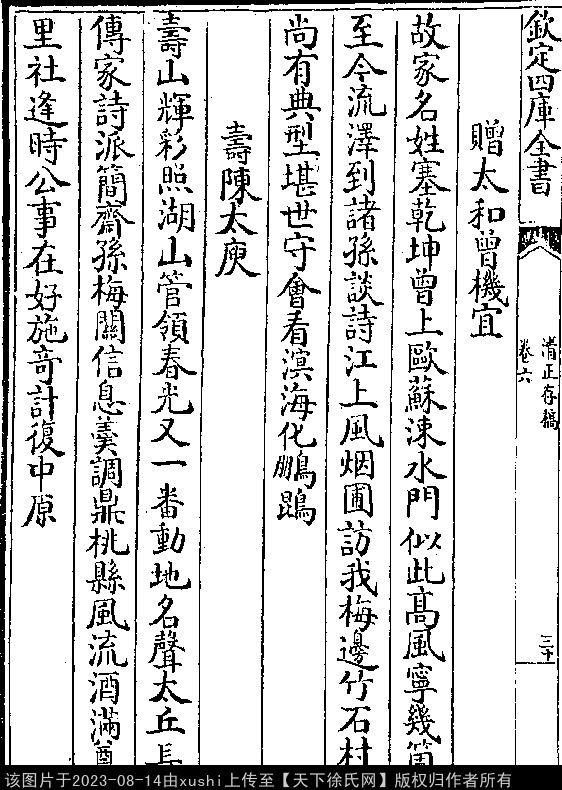 欽定四庫全書
清正存稿
卷六
三十
贈太和曾機宜
故家名姓塞乾坤曾上歐蘇涑水門似此髙風寧幾
至今流澤到諸孫談詩江上風烟圃訪我梅邊竹石村
尚有典型堪世守會看溟海化鵬鵾
壽陳太庾
壽山輝彩照湖山管領春光又一番動地名聲太丘長
傳家詩派簡齋孫梅關信息羹調鼎桃縣風流酒滿
里社逢時公事在好施竒計復中原
该图片于2023-08-14由xushi上传至【天下徐氏网】版权归作者所有